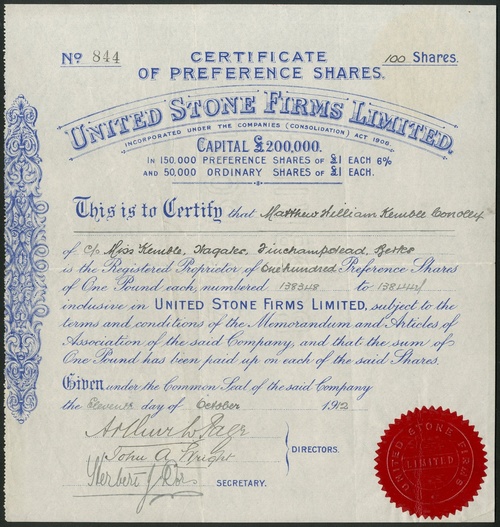 No 844
CERTIFICATE
OF PREFERENCE SHARES.
100 Shares.
UNITED STONE FIRMS LIMITED.
INCORPORATED UNDER THE COMPANIES (CONSOLIDATION) ACT 1908.
CAPITAL £200,000.
IN 150,000 PREFERENCE SHARES OF £1 EACH 6%
AND 50,000 ORDINARY SHARES OF £1 EACH.
This is to Certify that Matthew William Kemble Connolly
of c/o Miss Kemble, Finchampstead, Berks
is the Registered Proprietor of One hundred Preference Shares
of One Pound each, numbered 138348 to
inclusive in UNITED STONE FIRMS LIMITED, subject to the
terms and conditions of the Memorandum and Articles of
Association of the said Company, and that the sum of
One Pound has been paid up on each of the said Shares.
Given under the Common Seal of the said Company
the Eleventh day of October 1912
Arthur W Page
John A Wright
DIRECTORS.
Herbert J
SECRETARY.
UNITED STONE FIRMS
LIMITED